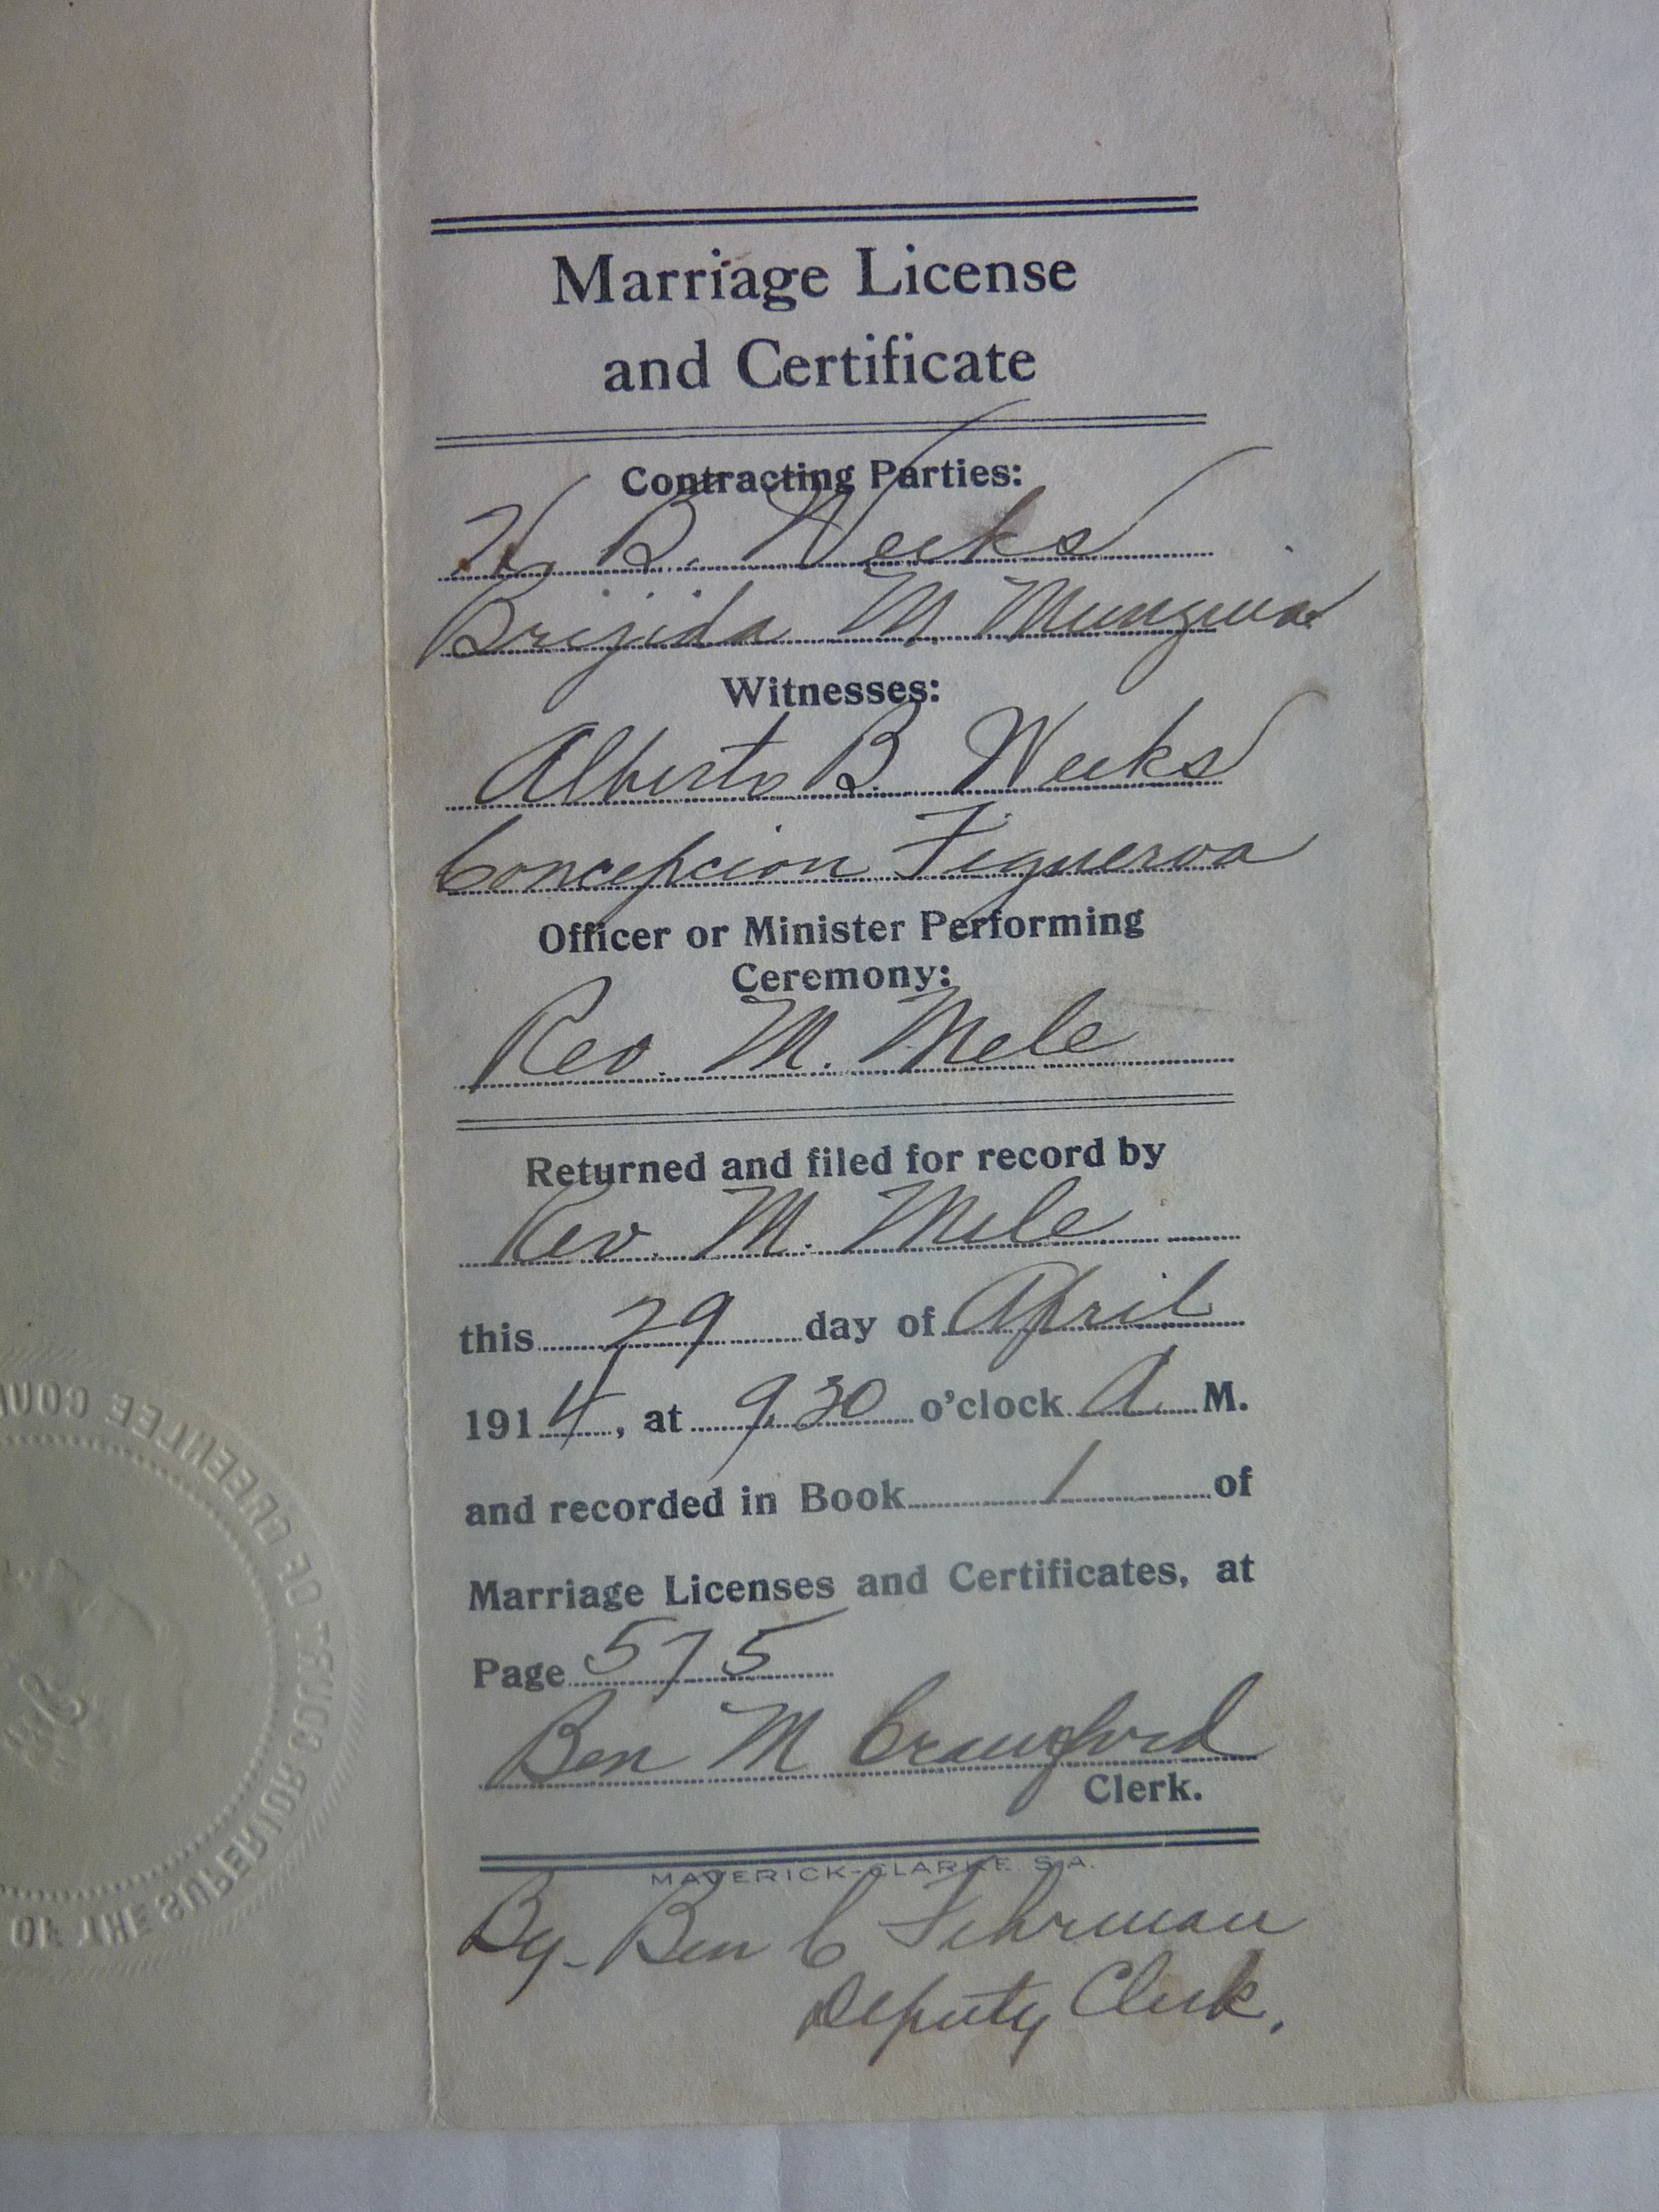 Marriage License
and Certificate
Contracting Parties:
H. B. Weeks
Brijida M. Munguia
Witnesses:
Alberto B. Weeks
Concepcion Figueroa
Officer or Minister Performing
Ceremony:
Rev. M. Mele
Returned and filed for record by
Rev. M. Mele
this 29 day of April
1914, at 9.30 o'clock A M.
and recorded in Book 1 of
Marriage Licenses and Certificates, at
Page 575
Ben M Crawford
Clerk.
MAVERICK-CLARKE S.A.
By- Ben C Fehrman
Deputy Clerk.
OF THE SUPERIOR COURT OF GREENLEE COUN